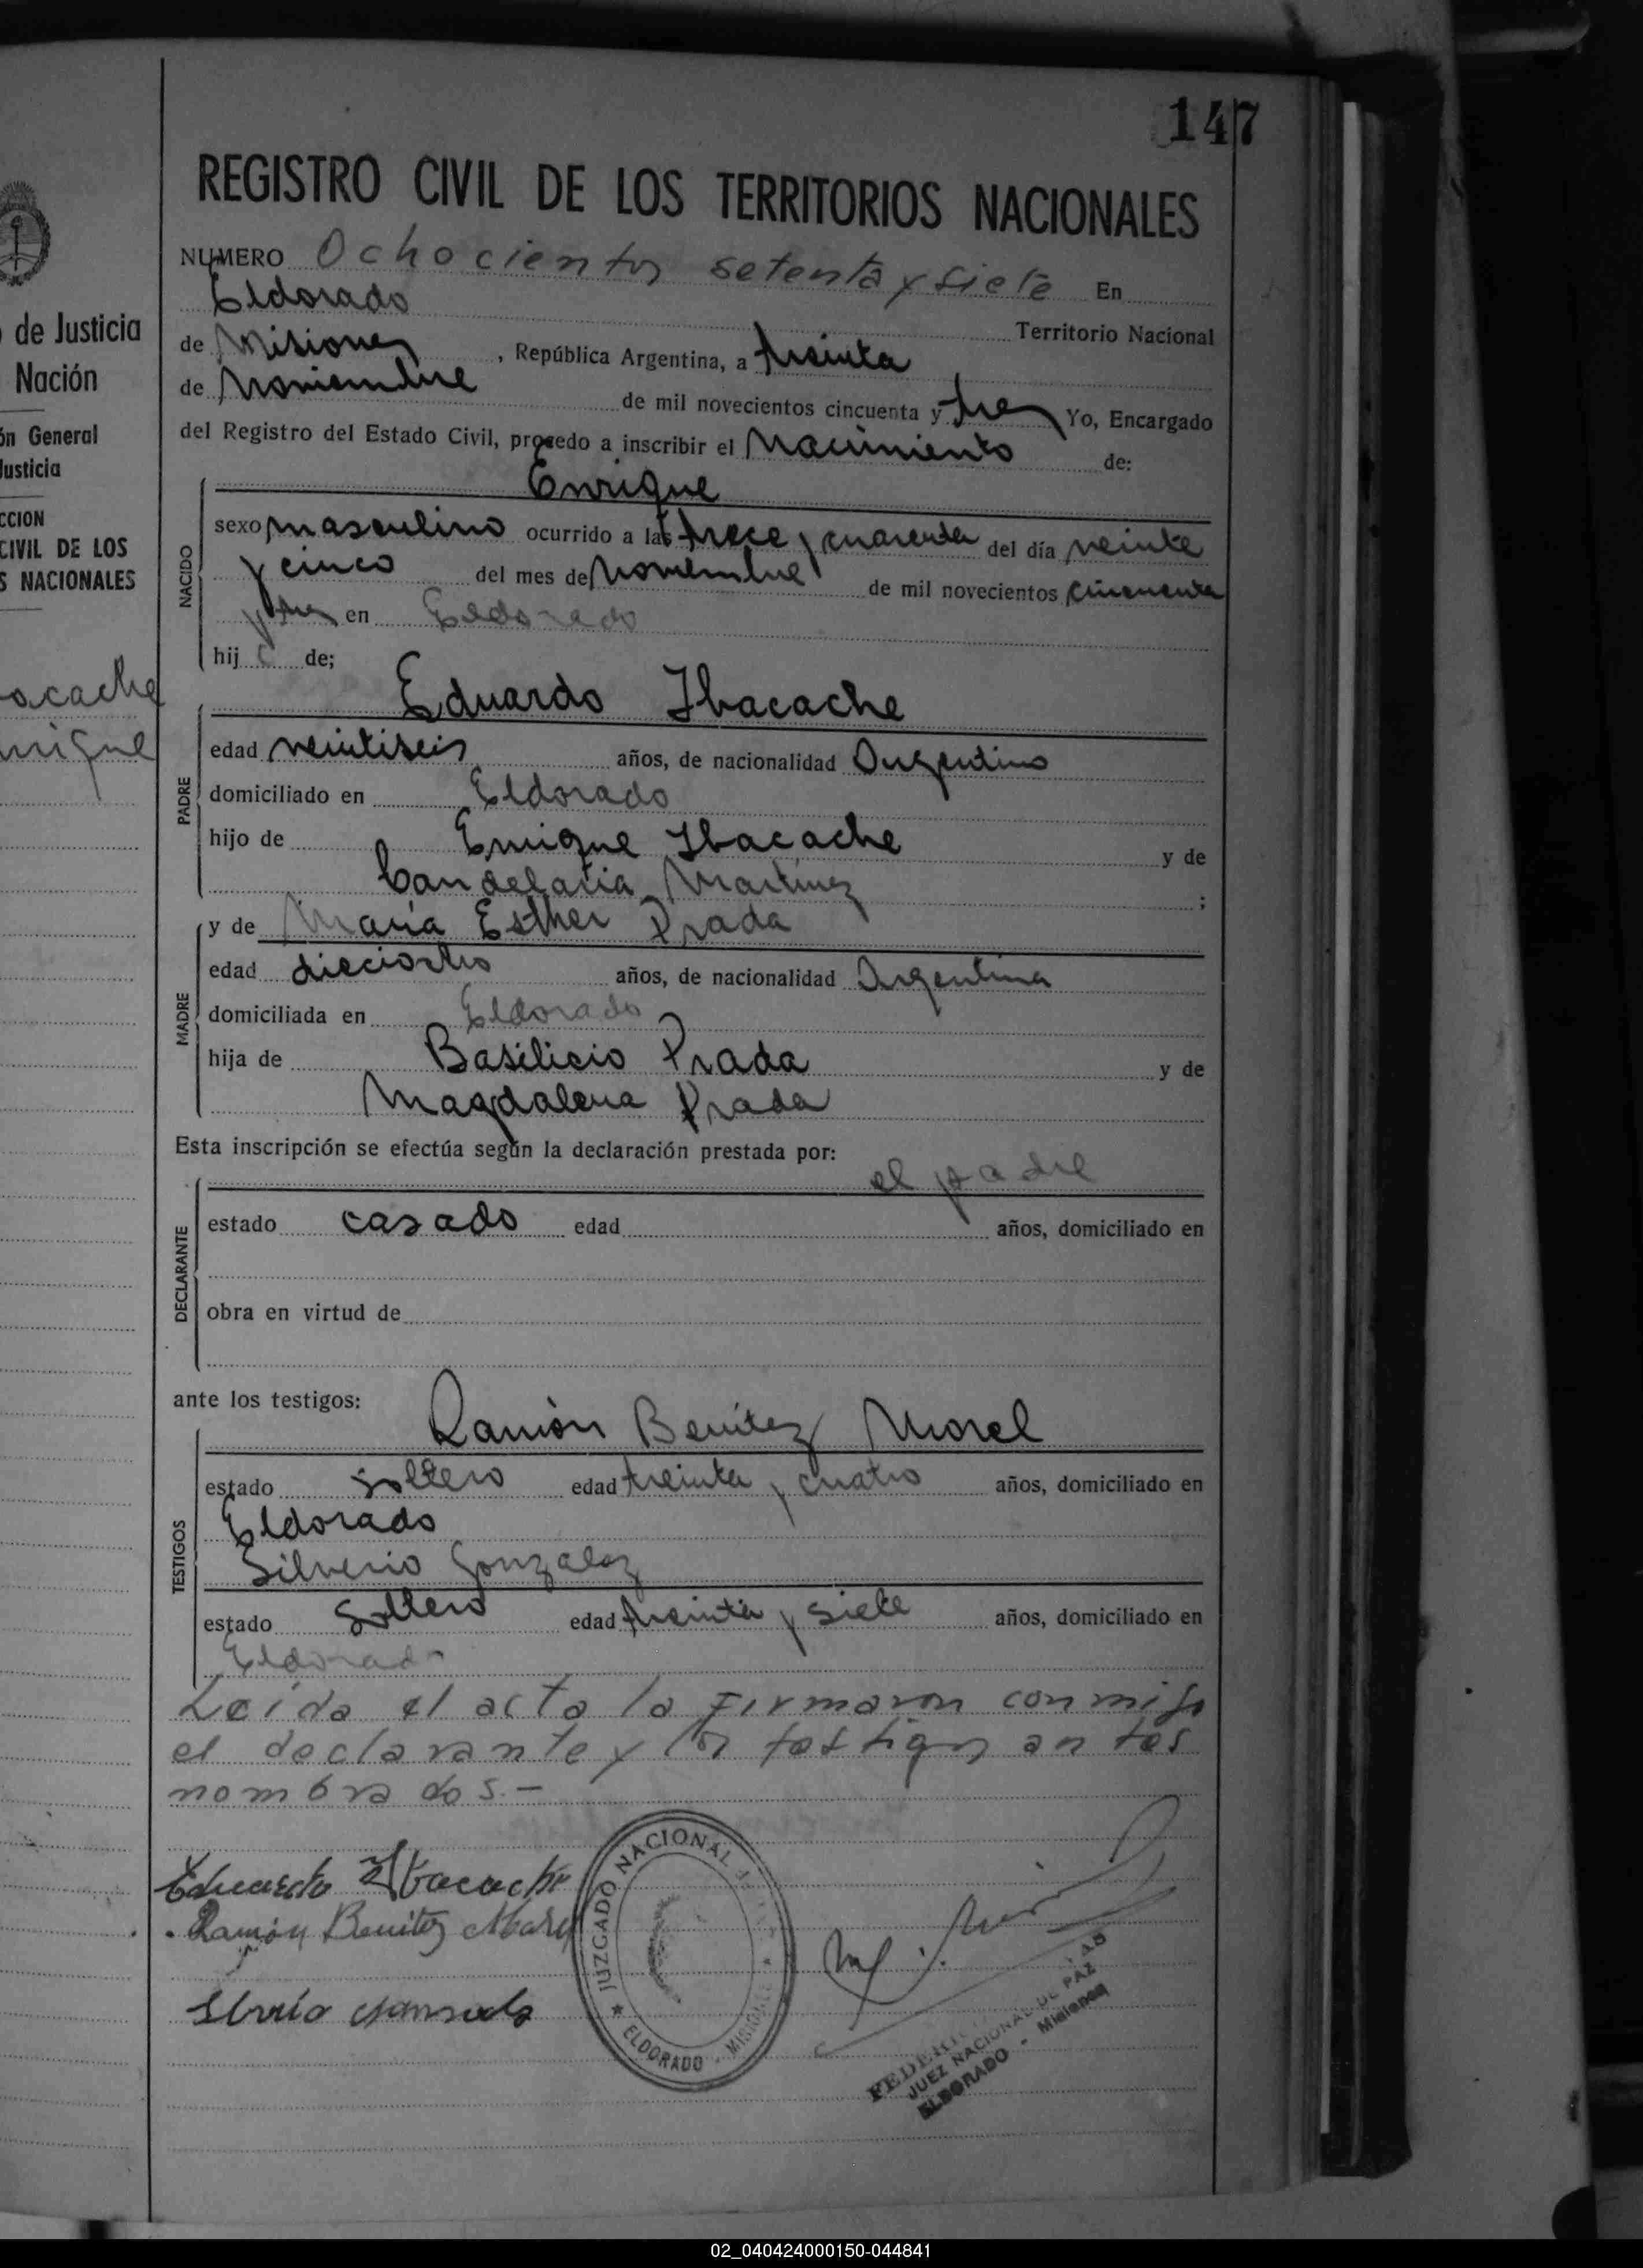 147
REGISTRO CIVIL DE LOS TERRITORIOS NACIONALES
NUMERO Ochocientos setenta y siete En
Eldorado Territorio Nacional
de Misiones, República Argentina, a treinta
de Noviembre de mil novecientos cincuenta y tres Yo, Encargado
del Registro del Estado Civil, procedo a inscribir el Nacimiento de:
Enrique
NACIDO
sexo masculino ocurrido a las trece y cuarenta del día veinte
y cinco del mes de Noviembre de mil novecientos cincuenta
y tres en Eldorado
hijo de;
Eduardo Ibacache
PADRE
edad veintiseis años, de nacionalidad Argentino
domiciliado en Eldorado
hijo de Enrique Ibacache y de
Candelaria Martinez ;
y de María Esther Prada
MADRE
edad dieciocho años, de nacionalidad Argentina
domiciliada en Eldorado
hija de Basilicio Prada y de
Magdalena Prada
Esta inscripción se efectúa según la declaración prestada por:
el padre
DECLARANTE
estado casado edad años, domiciliado en
obra en virtud de
ante los testigos:
Ramón Benítez Morel
TESTIGOS
estado soltero edad treinta y cuatro años, domiciliado en
Eldorado
Silverio Gonzalez
estado soltero edad treinta y siete años, domiciliado en
Eldorado
Leída el acta la firmaron conmigo
el declarante y los testigos antes
nombrados.-
Eduardo Ibacache
Ramón Benitez
JUZGADO NACIONAL
ELDORADO - MISIONES
JUEZ NACIONAL DE PAZ
ELDORADO - Misiones
de Justicia
Nación
ón General
Justicia
CCION
CIVIL DE LOS
S NACIONALES
acache
nrique
02_040424000150-044841